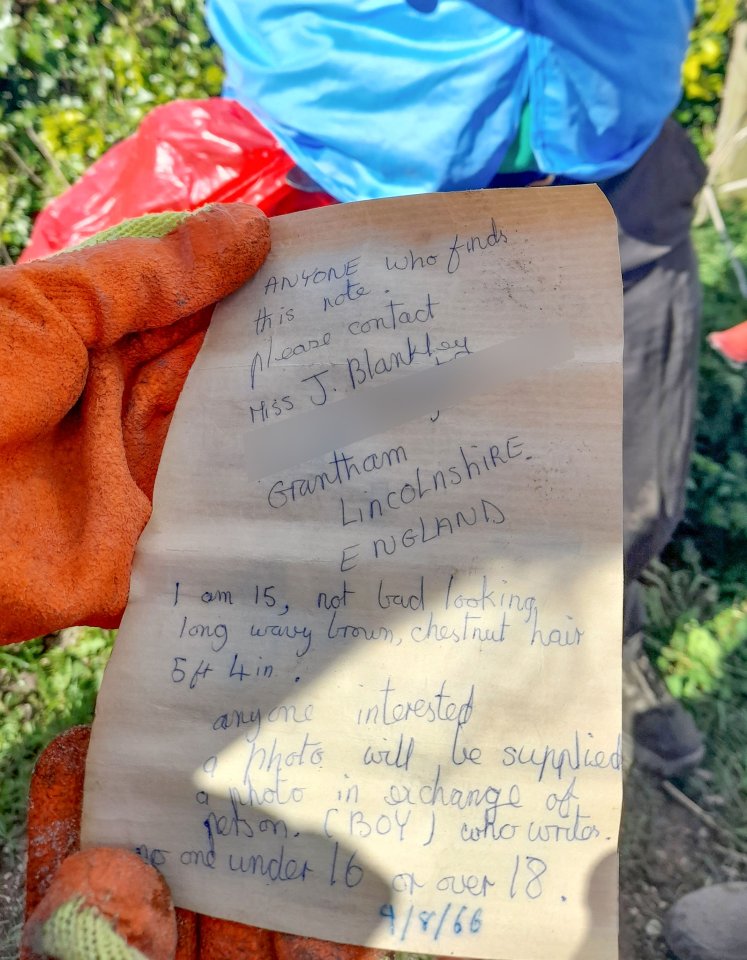 ANYONE who finds
this note.
please contact
Miss J. Blankley
Grantham
LINCOLNSHIRE.
ENGLAND
I am 15, not bad looking,
long wavy brown, chestnut hair
5ft 4in.
anyone interested
a photo will be supplied
a photo in exchange of
person. (BOY) who writes.
no one under 16 or over 18.
9/8/66